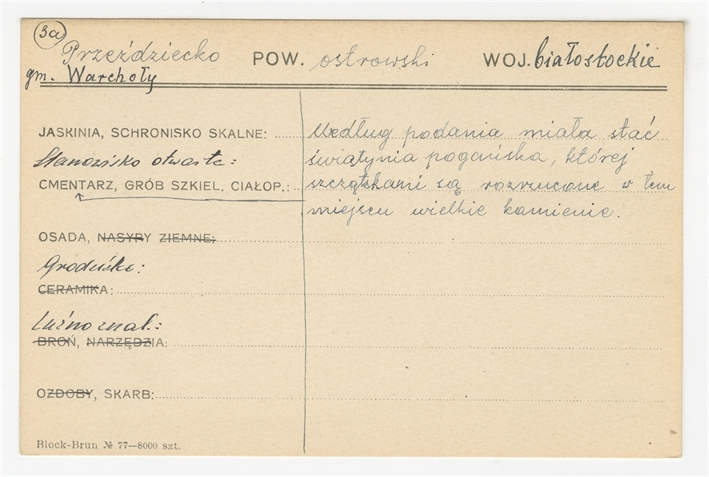 3a
Przeździecko POW. ostrowski WOJ. białostockie
gm. Warchoły
JASKINIA, SCHRONISKO SKALNE:
Stanowisko otwarte:
CMENTARZ, GRÓB SZKIEL, CIAŁOP.:
OSADA, NASYPY ZIEMNE:
Grodzisko:
CERAMIKA:
Luźno znal.:
BROŃ, NARZĘDZIA:
OZDOBY, SKARB:
Według podania miała stać
świątynia pogańska, której
szczątkami są rozrzucone w tem
miejscu wielkie kamienie.
Block-Brun № 77—8000 szt.